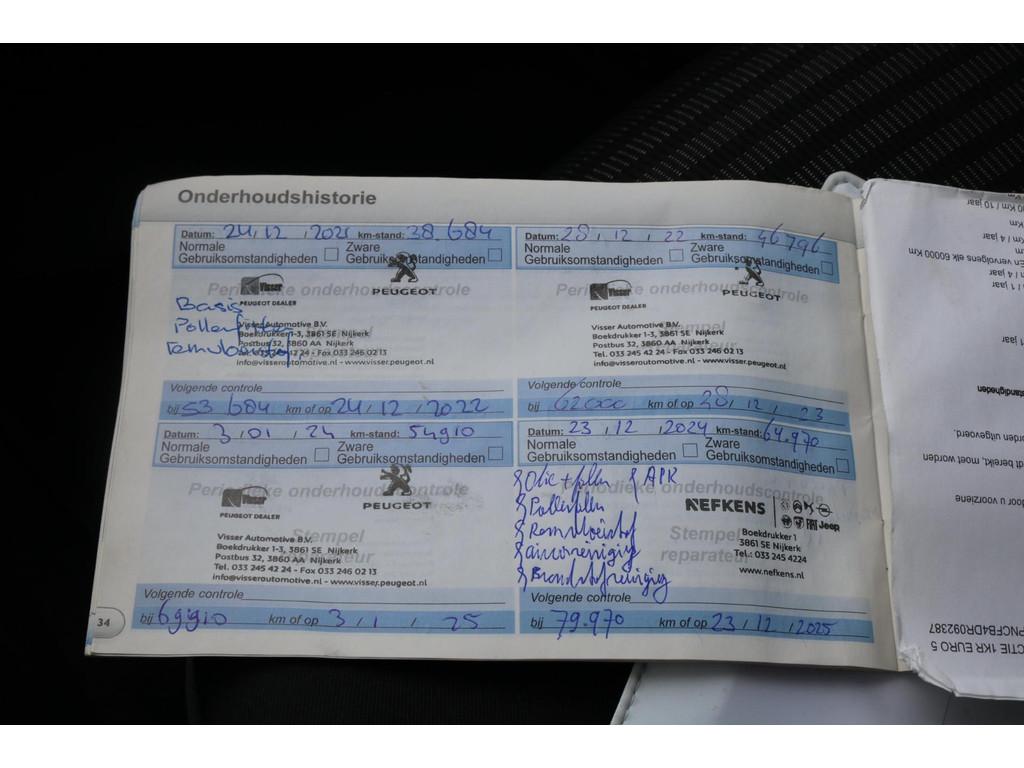 Onderhoudshistorie
Datum: 24, 12, 2021 km-stand: 38.684
Normale Gebruiksomstandigheden
Zware Gebruiksomstandigheden
Periodieke onderhoudscontrole
Visser
PEUGEOT DEALER
PEUGEOT
Basis
Pollenfilter
Remvloeistof
Visser Automotive B.V.
Boekdrukker 1-3, 3861 SE Nijkerk
Postbus 32, 3860 AA Nijkerk
Tel. 033 245 42 24 - Fax 033 246 02 13
info@visserautomotive.nl - www.visser.peugeot.nl
Volgende controle
bij 53 684 km of op 24, 12, 2022
Datum: 28, 12, 22 km-stand: 46796
Normale Gebruiksomstandigheden
Zware Gebruiksomstandigheden
Periodieke onderhoudscontrole
Visser
PEUGEOT DEALER
PEUGEOT
Stempel
Visser Automotive B.V.
Boekdrukker 1-3, 3861 SE Nijkerk
Postbus 32, 3860 AA Nijkerk
Tel. 033 245 42 24 - Fax 033 246 02 13
info@visserautomotive.nl - www.visser.peugeot.nl
Volgende controle
bij 62000 km of op 28, 12, 23
Datum: 3, 01, 24 km-stand: 54910
Normale Gebruiksomstandigheden
Zware Gebruiksomstandigheden
Periodieke onderhoudscontrole
PEUGEOT DEALER
PEUGEOT
Stempel
Visser Automotive B.V.
Boekdrukker 1-3, 3861 SE Nijkerk
Postbus 32, 3860 AA Nijkerk
Tel. 033 245 42 24 - Fax 033 246 02 13
info@visserautomotive.nl - www.visser.peugeot.nl
Volgende controle
bij 69910 km of op 3, 1, 25
34
Datum: 23, 12, 2024 km-stand: 64.970
Normale Gebruiksomstandigheden
Zware Gebruiksomstandigheden
Periodieke onderhoudscontrole
Olie + filter APK
Pollenfilter
Remvloeistof
aircoreiniging
Brandstofreiniging
NEFKENS
Jeep
Stempel reparateur
Boekdrukker 1
3861 SE Nijkerk
Tel.: 033 245 4224
www.nefkens.nl
Volgende controle
bij 79.970 km of op 23, 12, 2025
Km / 4 jaar
En vervolgens elk 60000 Km
rden uitgevoerd.
dt bereikt, moet worden
oor u voorziene
PNCFB4DR092387
CTIE 1KR EURO 5